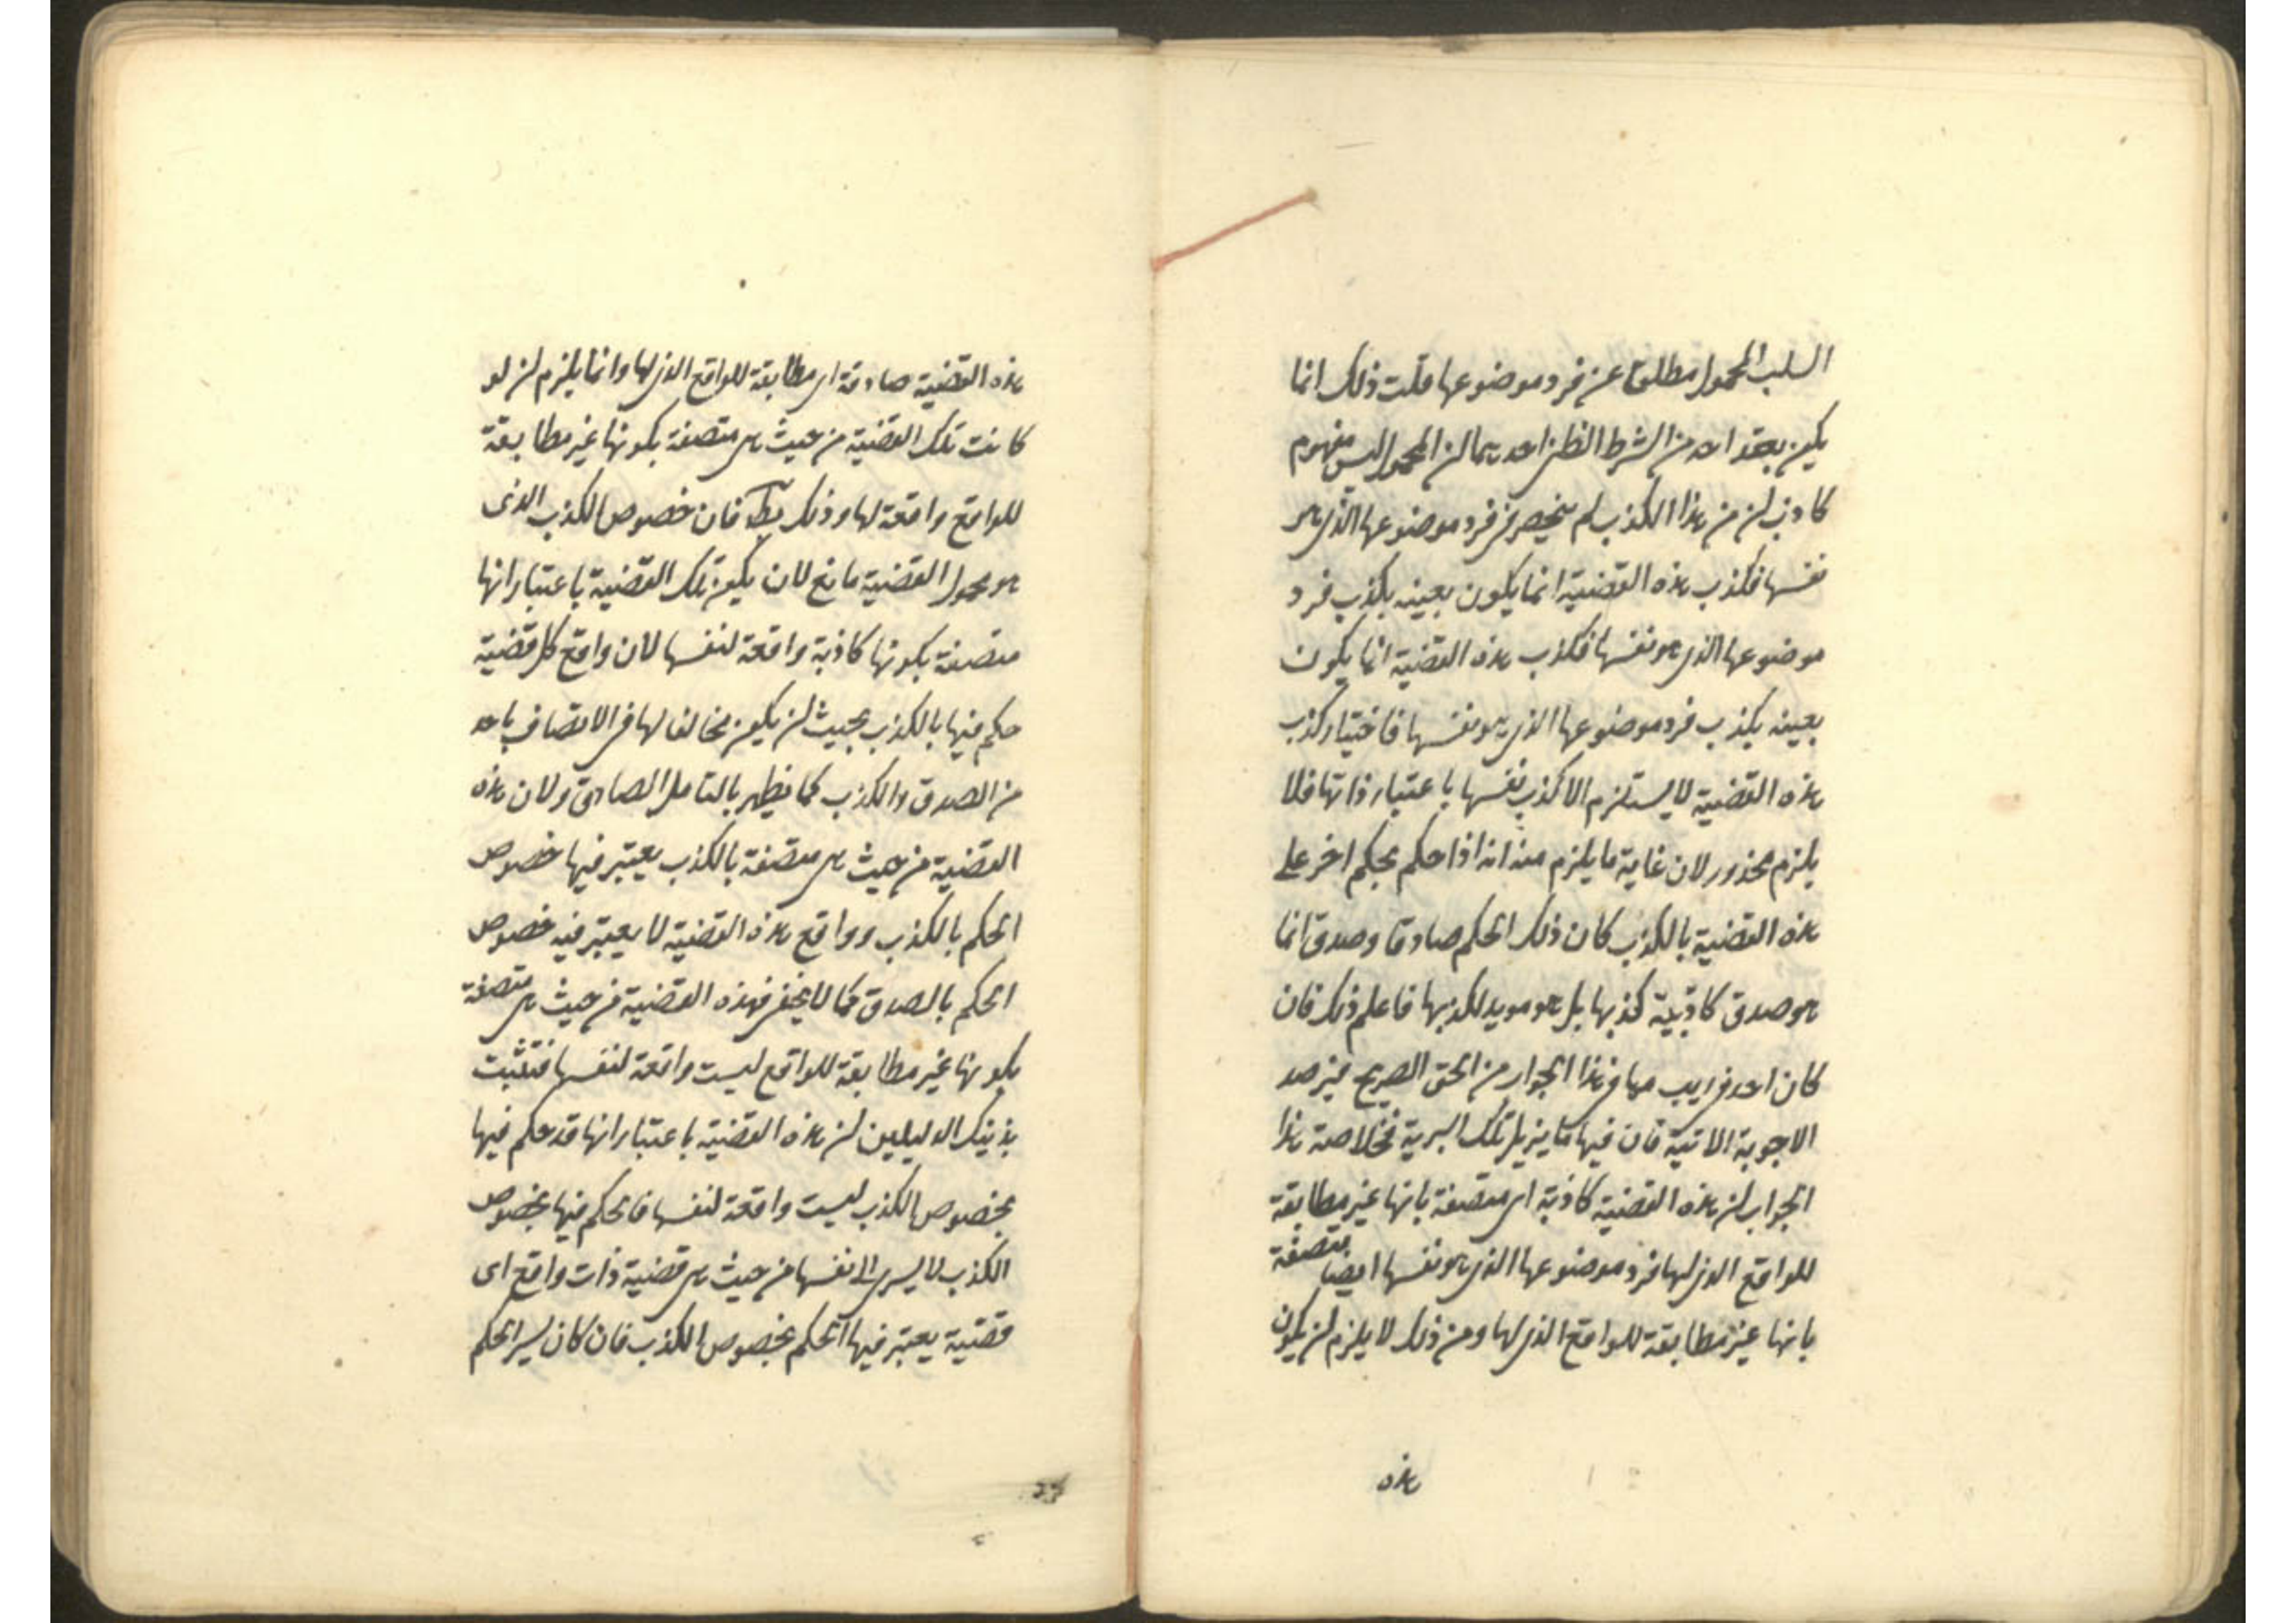 السلب المحمول مطلقا عن فرد موضوعها قلت ذلك انما
يكون بعقد احد من الشرط الظن احديهما ان المحمول ليس مفهوم
كاذب لن من هذا الكذب لم ينحصر فى فرد موضوعها الذى هو
نفسها فكذب هذه القضية انما يكون بعينه يكذب فرد
موضوعها الذى هو نفسها فكذب هذه القضية انما يكون
بعينه يكذب فرد موضوعها الذى هو نفسها فاختيار كذب
هذه القضية لا يستلزم الا كذب نفسها باعتبار ذاتها فلا
يلزم محذور لان غاية ما يلزم منه انه اذا حكم بحكم اخر على
هذه القضية بالكذب كان ذلك الحكم صادقا وصدق انما
هو صدق كاذبية كذبها بل هو مويد لكذبها فاعلم ذلك فان
كان احد فى ريب مما فى هذا الجواب من الحق الصريح فيرصد
الاجوبة الاتية فان فيها ما يزيل تلك البرية فخلاصة هذا
الجواب ان هذه القضية كاذبة اى متصفة بانها غير مطابقة
للواقع الذى لها فرد موضوعها الذى هو نفسها ايضا متصفة
بانها غير مطابقة للواقع الذى لها ومن ذلك لا يلزم ان يكون
هذه
هذه القضية صادقة اى مطابقة للواقع الذى لها وانما يلزم ان لو
كانت تلك القضية من حيث هى متصفة بكونها غير مطابقة
للواقع واقعة لها وذلك بط فان خصوص الكذب الذى
هو محمول القضية مانع لان يكون تلك القضية باعتبار انها
متصفة بكونها كاذبة واقعة لنفسها لان واقع كل قضية
حكم فيها بالكذب بحيث ان يكون مخالفا لها فى الاتصاف باحد
من الصدق والكذب كما يظهر بالتامل الصادق ولان هذه
القضية من حيث هى متصفة بالكذب يعتبر فيها خصوص
الحكم بالكذب وواقع هذه القضية لا يعتبر فيه خصوص
الحكم بالصدق كما لا يخفى فهذه القضية من حيث هى متصفة
بكونها غير مطابقة للواقع ليست واقعة لنفسها فتثبت
بذينك الدليلين ان هذه القضية باعتبار انها قد حكم فيها
بخصوص الكذب ليست واقعة لنفسها فالحكم فيها بخصوص
الكذب لا يسرى الا نفسها من حيث هى قضية ذات واقع اى
قضية يعتبر فيها الحكم بخصوص الكذب فان كان يسر الحكم